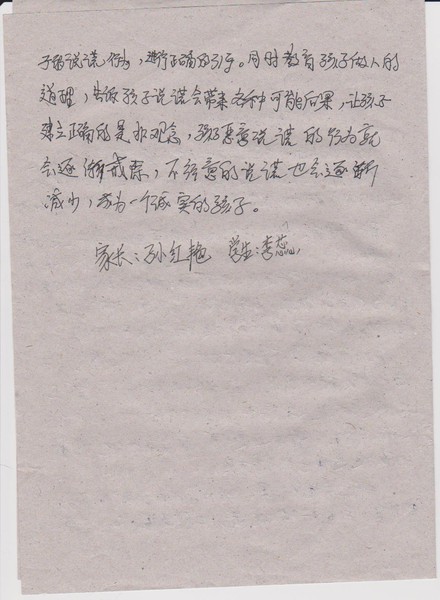 子的说谎行为，进行正确的引导。同时教育孩子做人的
道理，告诉孩子说谎会带来各种可能后果，让孩子
建立正确的是非观念，孩子恶意说谎的行为就
会逐渐戒除，不经意的说谎也会逐渐
减少，成为一个诚实的孩子。
家长：孙红艳 学生：李蕊